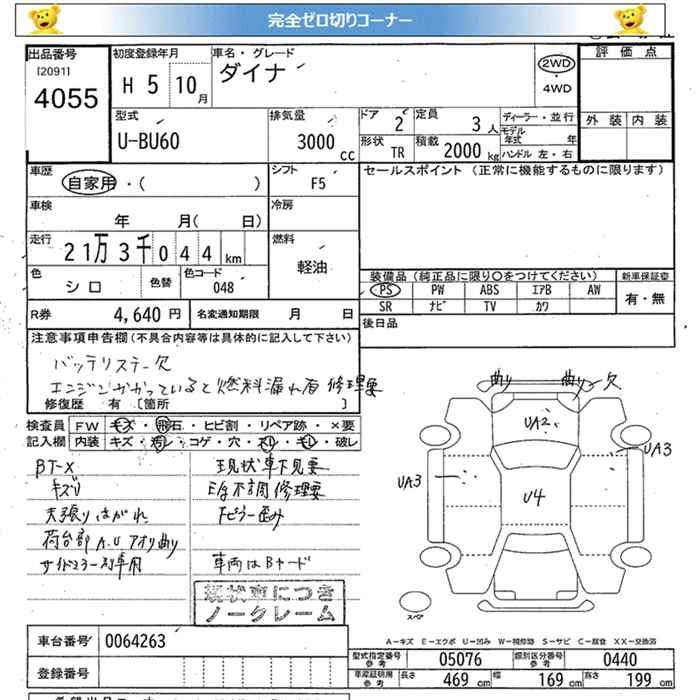 完全ゼロ切りコーナー
出品番号
[2091]
4055
初度登録年月
H 5 10 月
車名・グレード
ダイナ
2WD
・
4WD
評価点
外装 内装
型式
U-BU60
排気量
3000 cc
ドア
2
定員
3 人
形状
TR
積載
2000 kg
ディーラー・並行
モデル年式 年
ハンドル 左・右
車歴
自家用・( )
シフト
F5
車検
年 月( 日)
冷房
走行
21万3千044 km
燃料
軽油
色
シロ
色替
色コード
048
R券 4,640 円
名変通知期限 月 日
セールスポイント (正常に機能するものに限ります)
装備品 (純正品に限り○をつけてください)
新車保証書
PS PW ABS エアB AW
SR ナビ TV カワ
有・無
後日品
注意事項申告欄 (不具合内容等は具体的に記入して下さい)
バッテリステー欠
エンジンかかっていると燃料漏れ有 修理要
修復歴 有 〔箇所 〕
検査員記入欄
FW キズ・飛石・ヒビ割・リペア跡・×要
内装 キズ・汚レ・コゲ・穴・スリ・キレ・破レ
BT-X
キズU
天張りはがれ
荷台部A.U アオリ曲り
サイドミラー別車用
現状車下見要
E/g不調修理要
Fピラー歪み
車両はBヤード
現状車につき
ノークレーム
曲り
曲り-欠
UA2
UA3
UA3
U4
スペア
A-キズ E-エクボ U-凹み W-補修跡 S-サビ C-腐食 XX-交換済
車台番号 0064263
登録番号
型式指定番号 参考 05076
類別区分番号 参考 0440
車庫証明用 参考 長さ 469 cm 幅 169 cm 高さ 199 cm